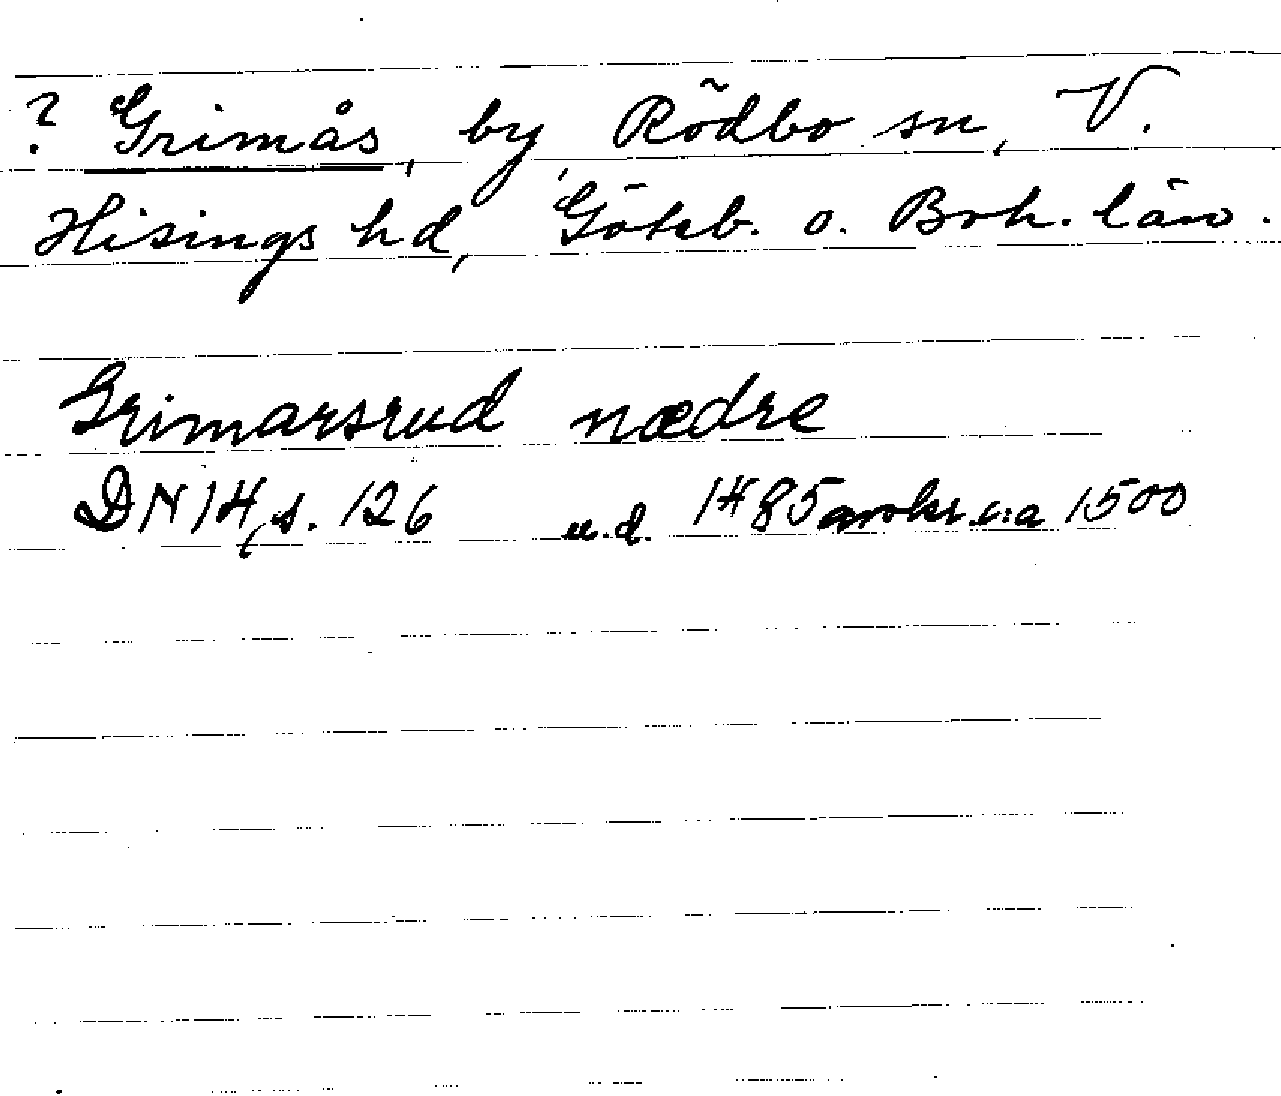 ? Grimås, by, Rödbo sn, V.
Hisings hd, Göteb. o. Boh. län.
Grimarsrud nædre
DN 14, s. 126 u.d. 1485 avskr. c:a 1500